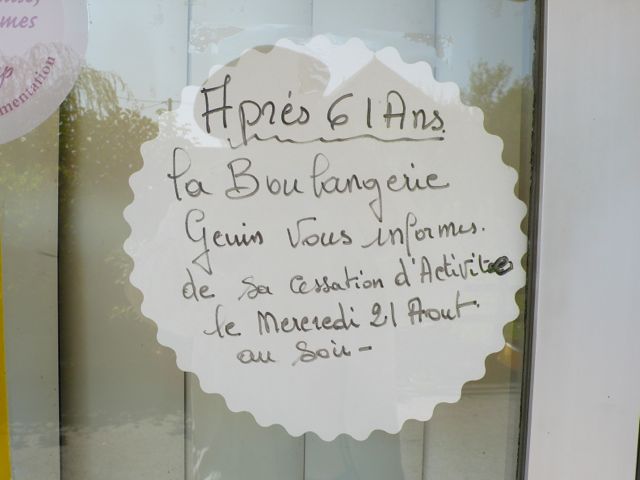 mes
mentation
Après 61 Ans.
la Boulangerie
Genin Vous informes.
de sa cessation d'Activite
le Mercredi 21 Aout
au Soir-